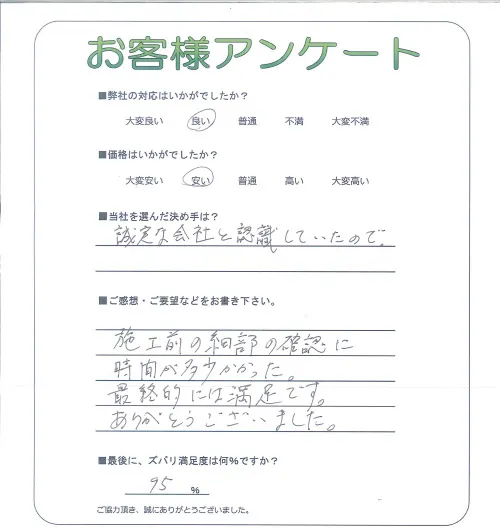 お客様アンケート
■弊社の対応はいかがでしたか?
大変良い 良い 普通 不満 大変不満
■価格はいかがでしたか?
大変安い 安い 普通 高い 大変高い
■当社を選んだ決め手は?
誠実な会社と認識していたので。
■ご感想・ご要望などをお書き下さい。
施工前の細部の確認に
時間が多少かかった。
最終的には満足です。
ありがとうございました。
■最後に、ズバリ満足度は何%ですか?
95 %
ご協力頂き、誠にありがとうございました。